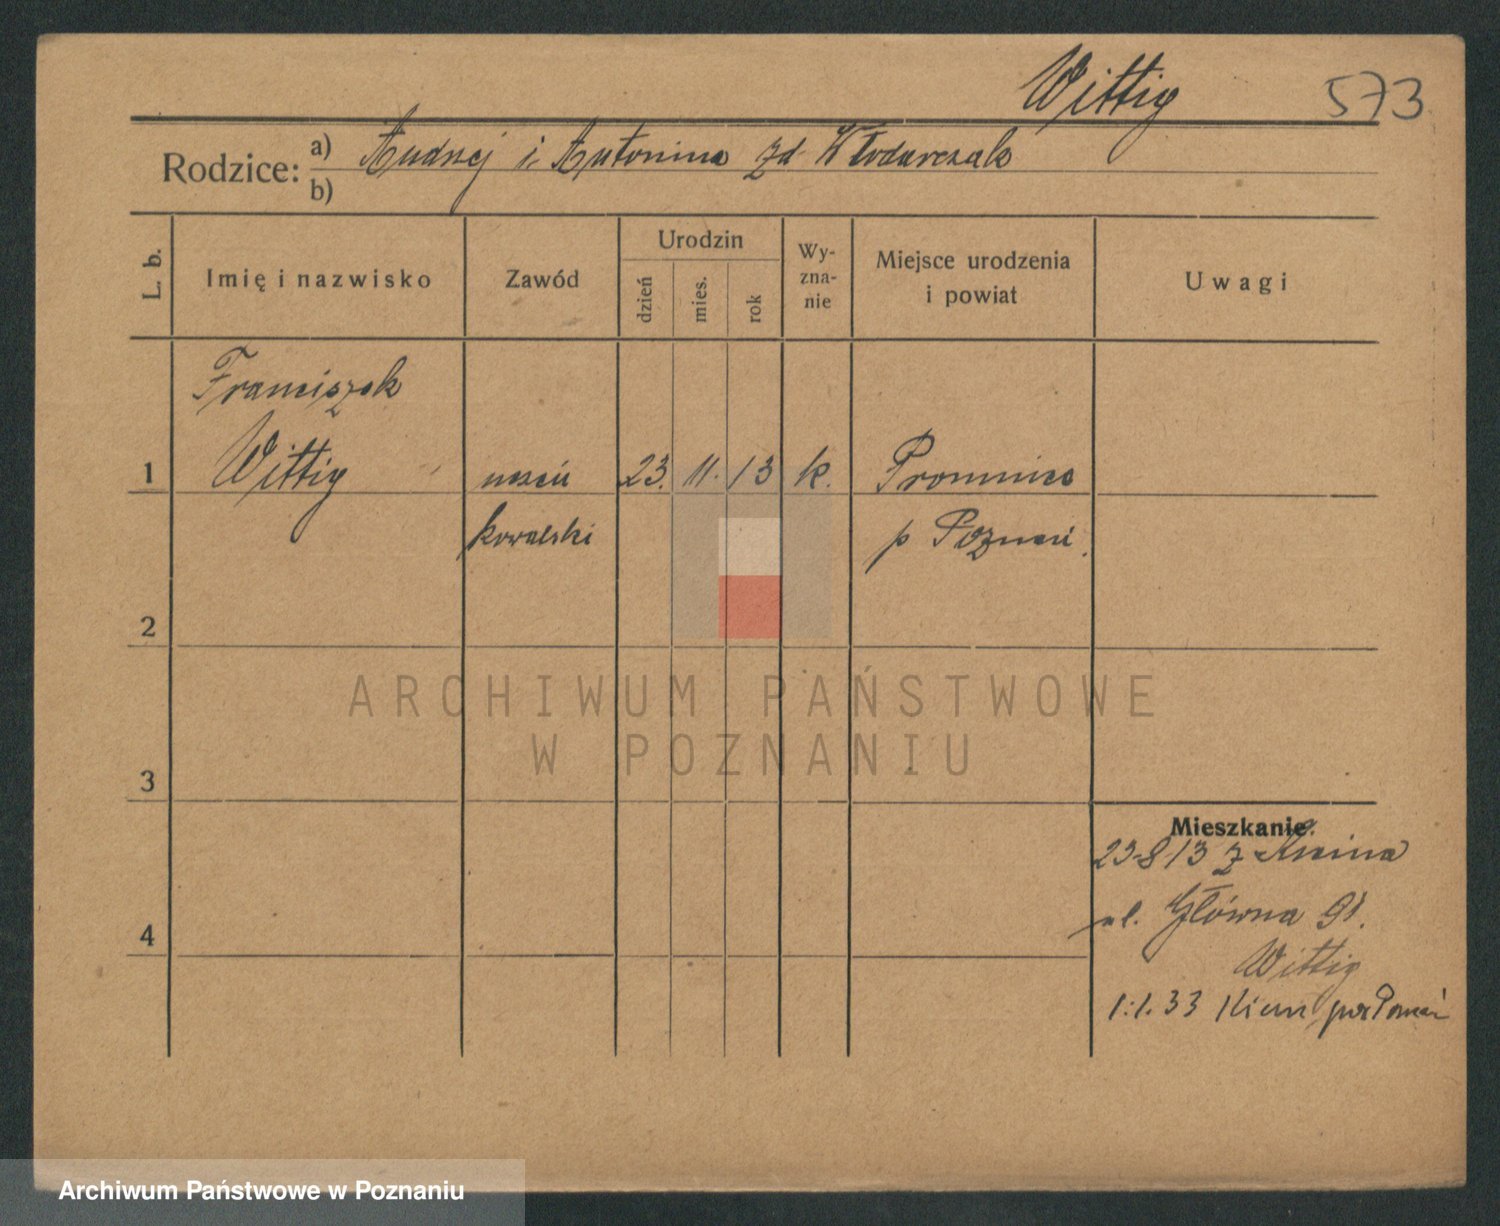 Wittig 573
Rodzice: a) Andrzej i Antonina zd Włodarczak
b)
L. b.
Imię i nazwisko
Zawód
Urodzin
dzień
mies.
rok
Wy-
zna-
nie
Miejsce urodzenia
i powiat
Uwagi
Franciszek
1 Wittig uczeń 23. 11. 13 k. Promnice
kowalski p Poznań.
2
ARCHIWUM PAŃSTWOWE
W POZNANIU
3
Mieszkanie:
23-8 13 z
4 ul. Główna 91.
Wittig
1.1.33
Archiwum Państwowe w Poznaniu